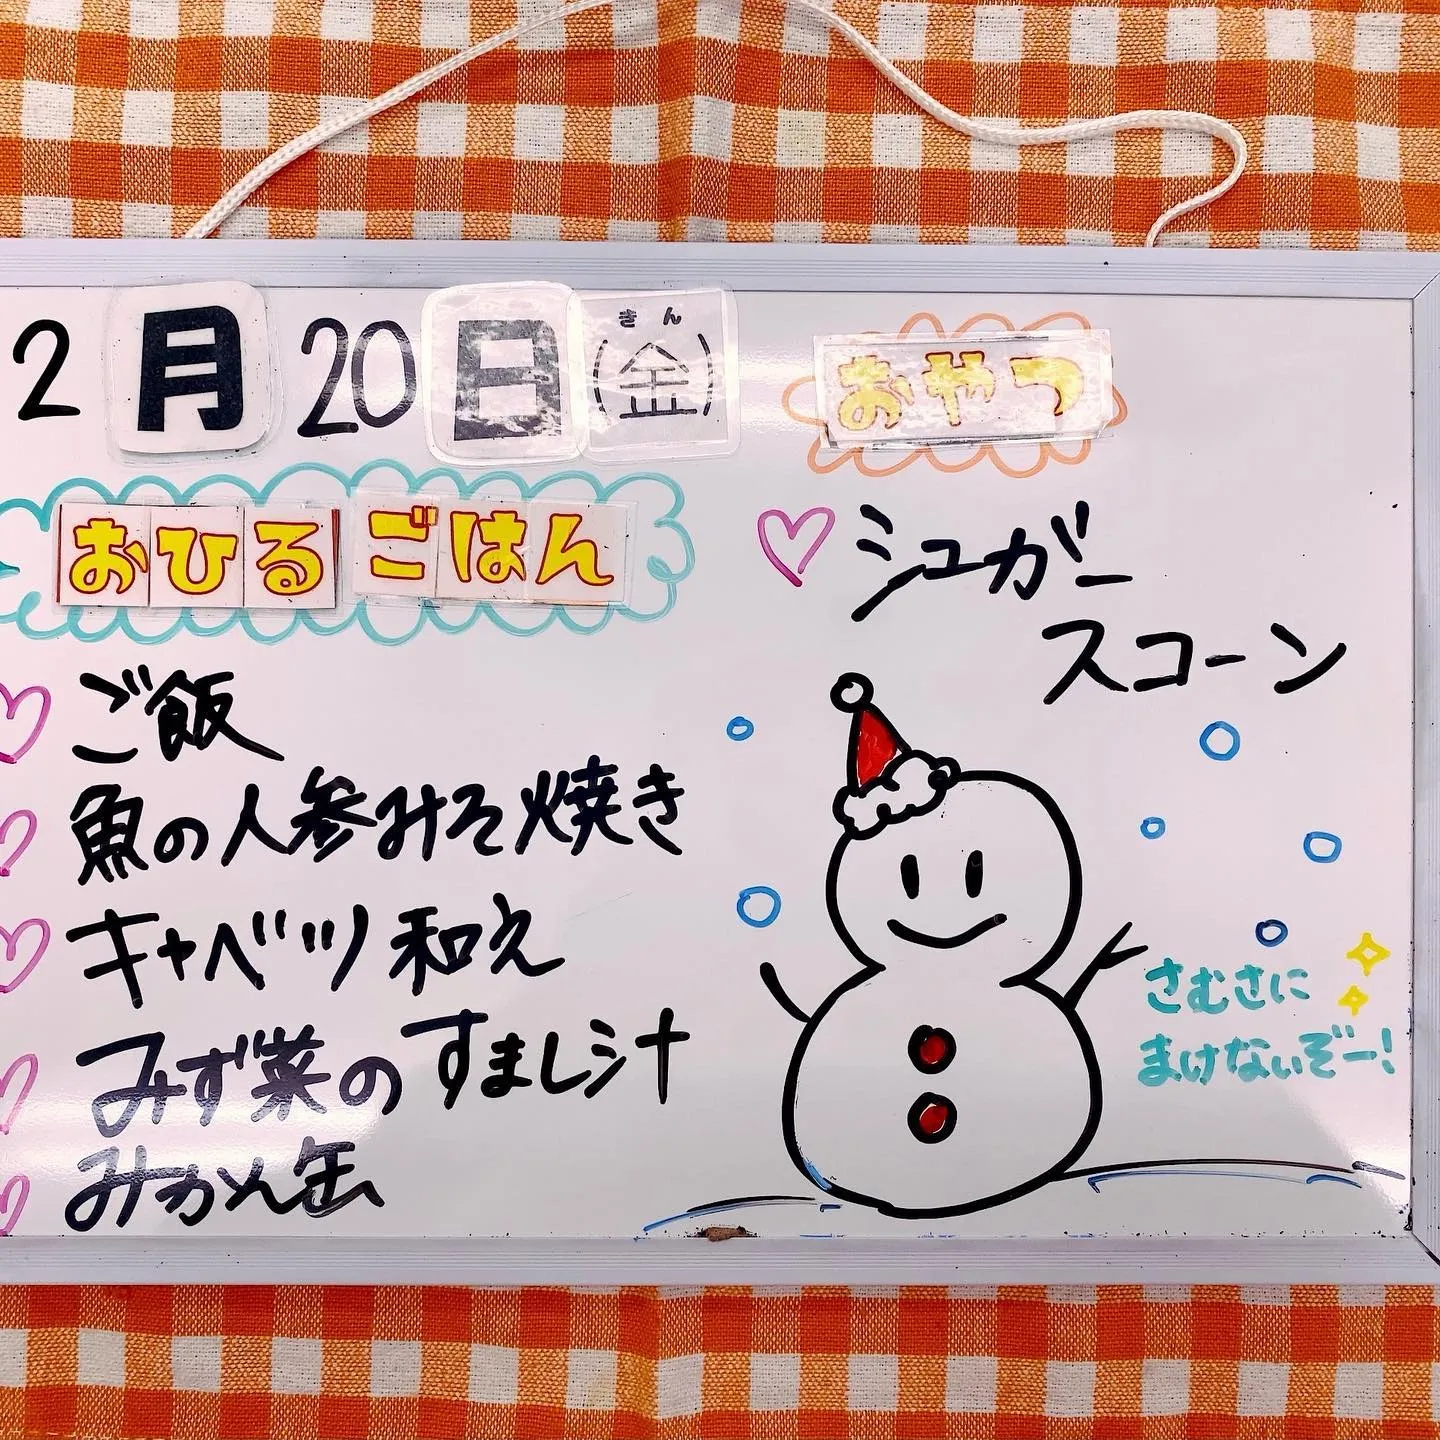 2月20日(金)
きん
おひるごはん
ご飯
魚の人参みそ焼き
キャベツ和え
みず菜のすまし汁
みかん缶
おやつ
シュガー
スコーン
さむさに
まけないぞー!